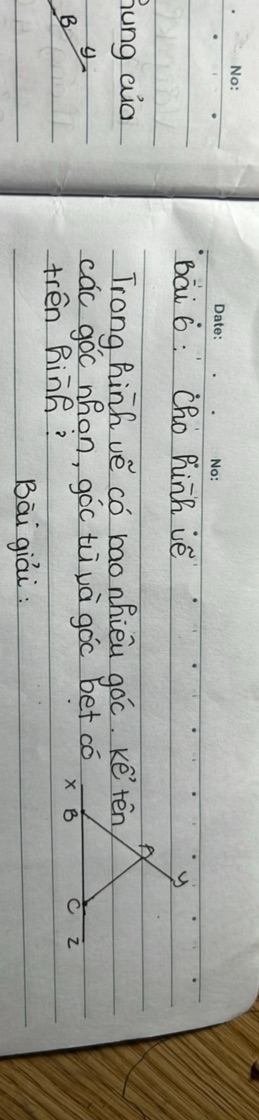 No:
y
B
hung của
Date:
No:
Bài 6: Cho hình vẽ
Trong hình vẽ có bao nhiêu góc. Kể tên
các góc nhọn, góc tù và góc bẹt có
trên hình?
y
A
x B C z
Bài giải: